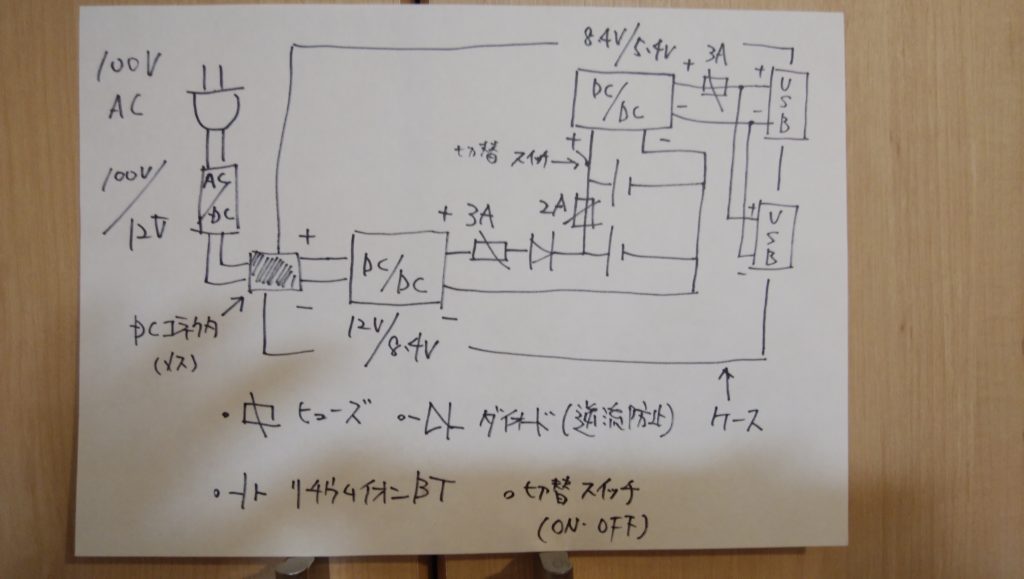 100V
AC
100V/12V
AC/DC
DCコネクタ
(メス)
+
-
DC/DC
12V/8.4V
+
-
3A
2A
切替 スイッチ→
8.4V/5.4V
DC/DC
+
-
+
-
3A
+
-
USB
+
-
USB
・ヒューズ
・ダイオード(逆流防止)
ケース
・リチウムイオンBT
・切替スイッチ
(ON・OFF)